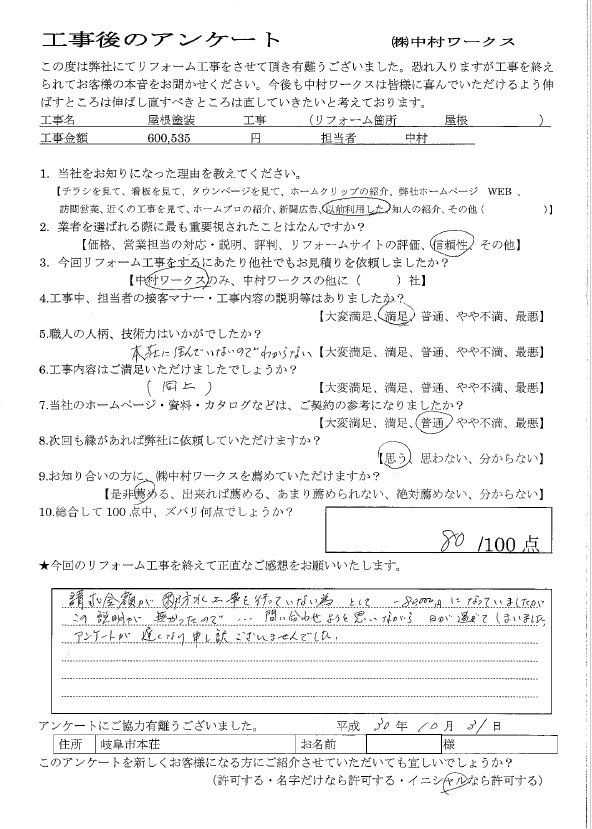 工事後のアンケート ㈱中村ワークス
この度は弊社にてリフォーム工事をさせて頂き有難うございました。恐れ入りますが工事を終え
られてお客様の本音をお聞かせください。今後も中村ワークスは皆様に喜んでいただけるよう伸
ばすところは伸ばし直すべきところは直していきたいと考えております。
工事名 屋根塗装 工事 (リフォーム箇所 屋根 )
工事金額 600,535 円 担当者 中村
1. 当社をお知りになった理由を教えてください。
【チラシを見て、看板を見て、タウンページを見て、ホームクリップの紹介、弊社ホームページ WEB、
訪問営業、近くの工事を見て、ホームプロの紹介、新聞広告、以前利用した、知人の紹介、その他( )】
2. 業者を選ばれる際に最も重要視されたことはなんですか?
【価格、営業担当の対応・説明、評判、リフォームサイトの評価、信頼性、その他】
3. 今回リフォーム工事をするにあたり他社でもお見積りを依頼しましたか?
【中村ワークスのみ、中村ワークスの他に( )社】
4.工事中、担当者の接客マナー・工事内容の説明等はありましたか?
【大変満足、満足、普通、やや不満、最悪】
5.職人の人柄、技術力はいかがでしたか?
本荘に住んでいないのでわからない【大変満足、満足、普通、やや不満、最悪】
6.工事内容はご満足いただけましたでしょうか?
(同上) 【大変満足、満足、普通、やや不満、最悪】
7.当社のホームページ・資料・カタログなどは、ご契約の参考になりましたか?
【大変満足、満足、普通、やや不満、最悪】
8.次回も縁があれば弊社に依頼していただけますか?
【思う、思わない、分からない】
9.お知り合いの方に、㈱中村ワークスを薦めていただけますか?
【是非薦める、出来れば薦める、あまり薦められない、絶対薦めない、分からない】
10.総合して100点中、ズバリ何点でしょうか?
80 /100 点
★今回のリフォーム工事を終えて正直なご感想をお願いいたします。
請求金額が 防水工事を行っていない為 として -80000円 になっていましたが
この説明が無かったので … 問い合わせようと思いながら 日が過ぎてしまいました
アンケートが遅くなり申し訳ございませんでした。
アンケートにご協力有難うございました。 平成 30 年 10 月 31 日
住所 岐阜市本荘 お名前 様
このアンケートを新しくお客様になる方にご紹介させていただいても宜しいでしょうか?
(許可する・名字だけなら許可する・イニシャルなら許可する)